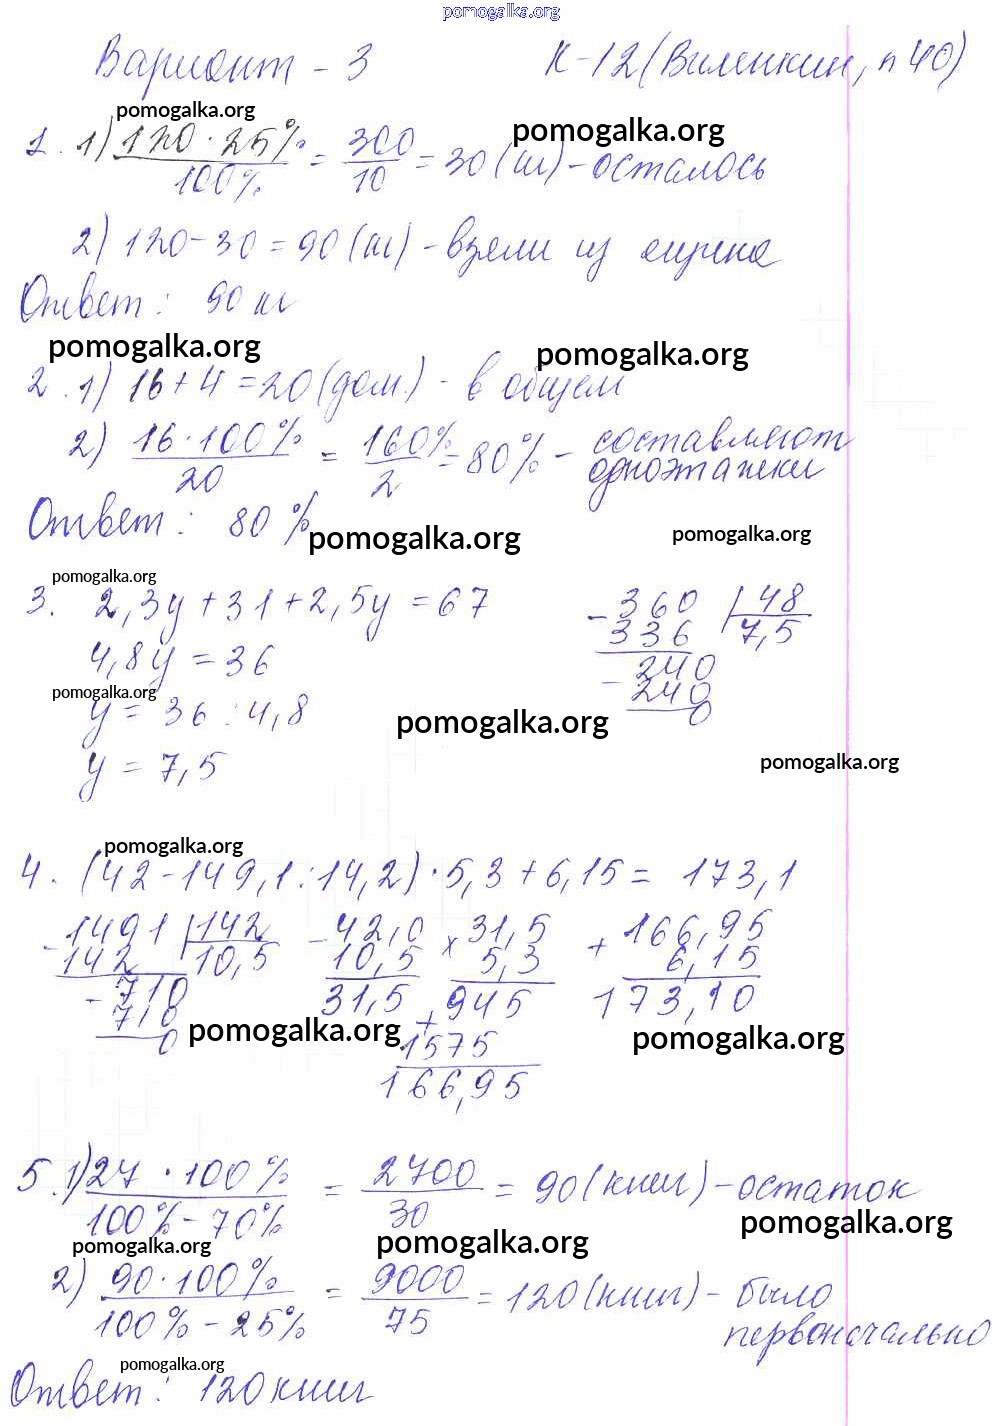 pomogalka.org
Вариант - 3 К-12 (Виленкин, п 40)
pomogalka.org
pomogalka.org
1. 1) 120 · 25% / 100% = 300 / 10 = 30 (кг) - осталось
2) 120 - 30 = 90 (кг) - взяли из ящика
Ответ: 90 кг
pomogalka.org
pomogalka.org
2. 1) 16 + 4 = 20 (дом.) - в общем
2) 16 · 100% / 20 = 160% / 2 = 80% - составляют
одноэтажки
Ответ: 80%
pomogalka.org
pomogalka.org
pomogalka.org
3. 2,3y + 31 + 2,5y = 67
4,8y = 36
pomogalka.org
y = 36 : 4,8
y = 7,5
- 360 | 48
336 7,5
- 240
240
0
pomogalka.org
pomogalka.org
pomogalka.org
4. (42 - 149,1 : 14,2) · 5,3 + 6,15 = 173,1
- 1491 | 142
142 10,5
- 710
710
0
- 42,0
10,5
31,5
× 31,5
5,3
+ 945
1575
166,95
+ 166,95
6,15
173,10
pomogalka.org
pomogalka.org
5. 1) 27 · 100% / 100% - 70% = 2700 / 30 = 90 (книг) - остаток
pomogalka.org
pomogalka.org
pomogalka.org
2) 90 · 100% / 100% - 25% = 9000 / 75 = 120 (книг) - было
первоначально
pomogalka.org
Ответ: 120 книг